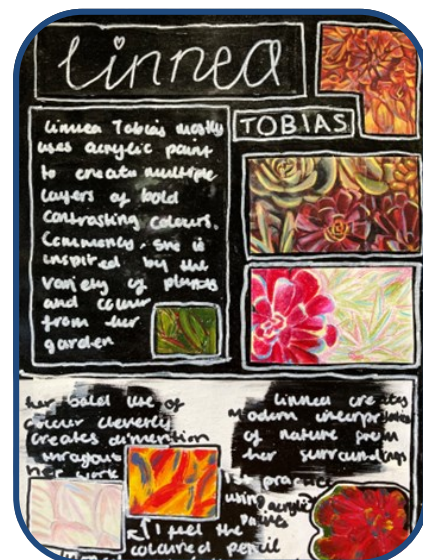 Linnea
TOBIAS
Linnea Tobias mostly
uses acrylic paint
to create multiple
layers of bold
contrasting colours.
Commonly, she is
inspired by the
variety of plants
and colour
from her
garden
her bold use of
colour cleverly
creates dimention
her work
Linnea creates
modern interpretations
of nature from
her surroundings
using acrylic
I feel the
coloured pencil